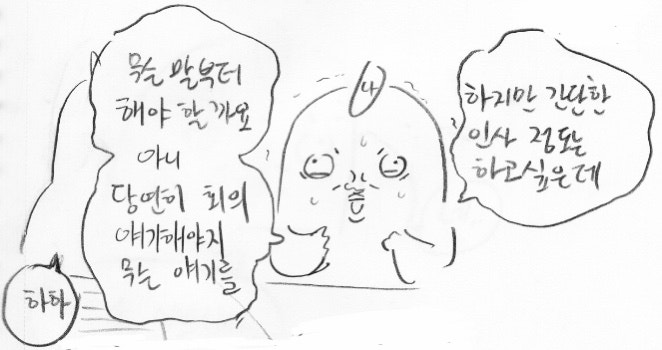 무슨 말부터
해야 할까요
아니
당연히 회의
얘기해야지
무슨 얘기를
나
하지만 간단한
인사 정도는
하고싶은데
하하